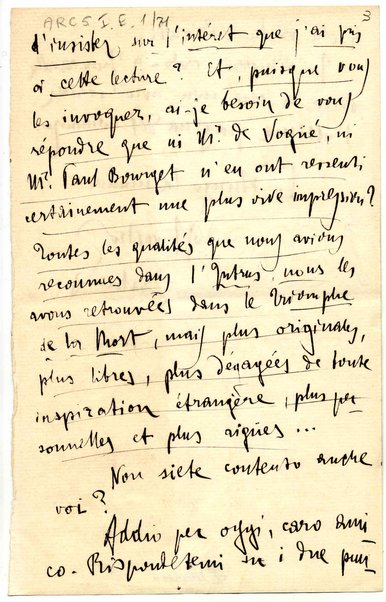 ARCS I. E. 1/71
3
d'insister sur l'intérêt que j'ai pris
à cette lecture? Et, puisque vous
les invoquez, ai-je besoin de vous
répondre que ni Mr. de Vogüé, ni
Mr. Paul Bourget n'en ont ressenti
certainement une plus vive impression?
Toutes les qualités que nous avions
reconnues dans l'Intrus, nous les
avons retrouvées dans le Triomphe
de la Mort, mais plus originales,
plus libres, plus dégagées de toute
inspiration étrangère, plus per
sonnelles et plus aigües ...
Non siete contento anche
voi?
Addio per oggi, caro ami
co. Rispondetemi su i due punti